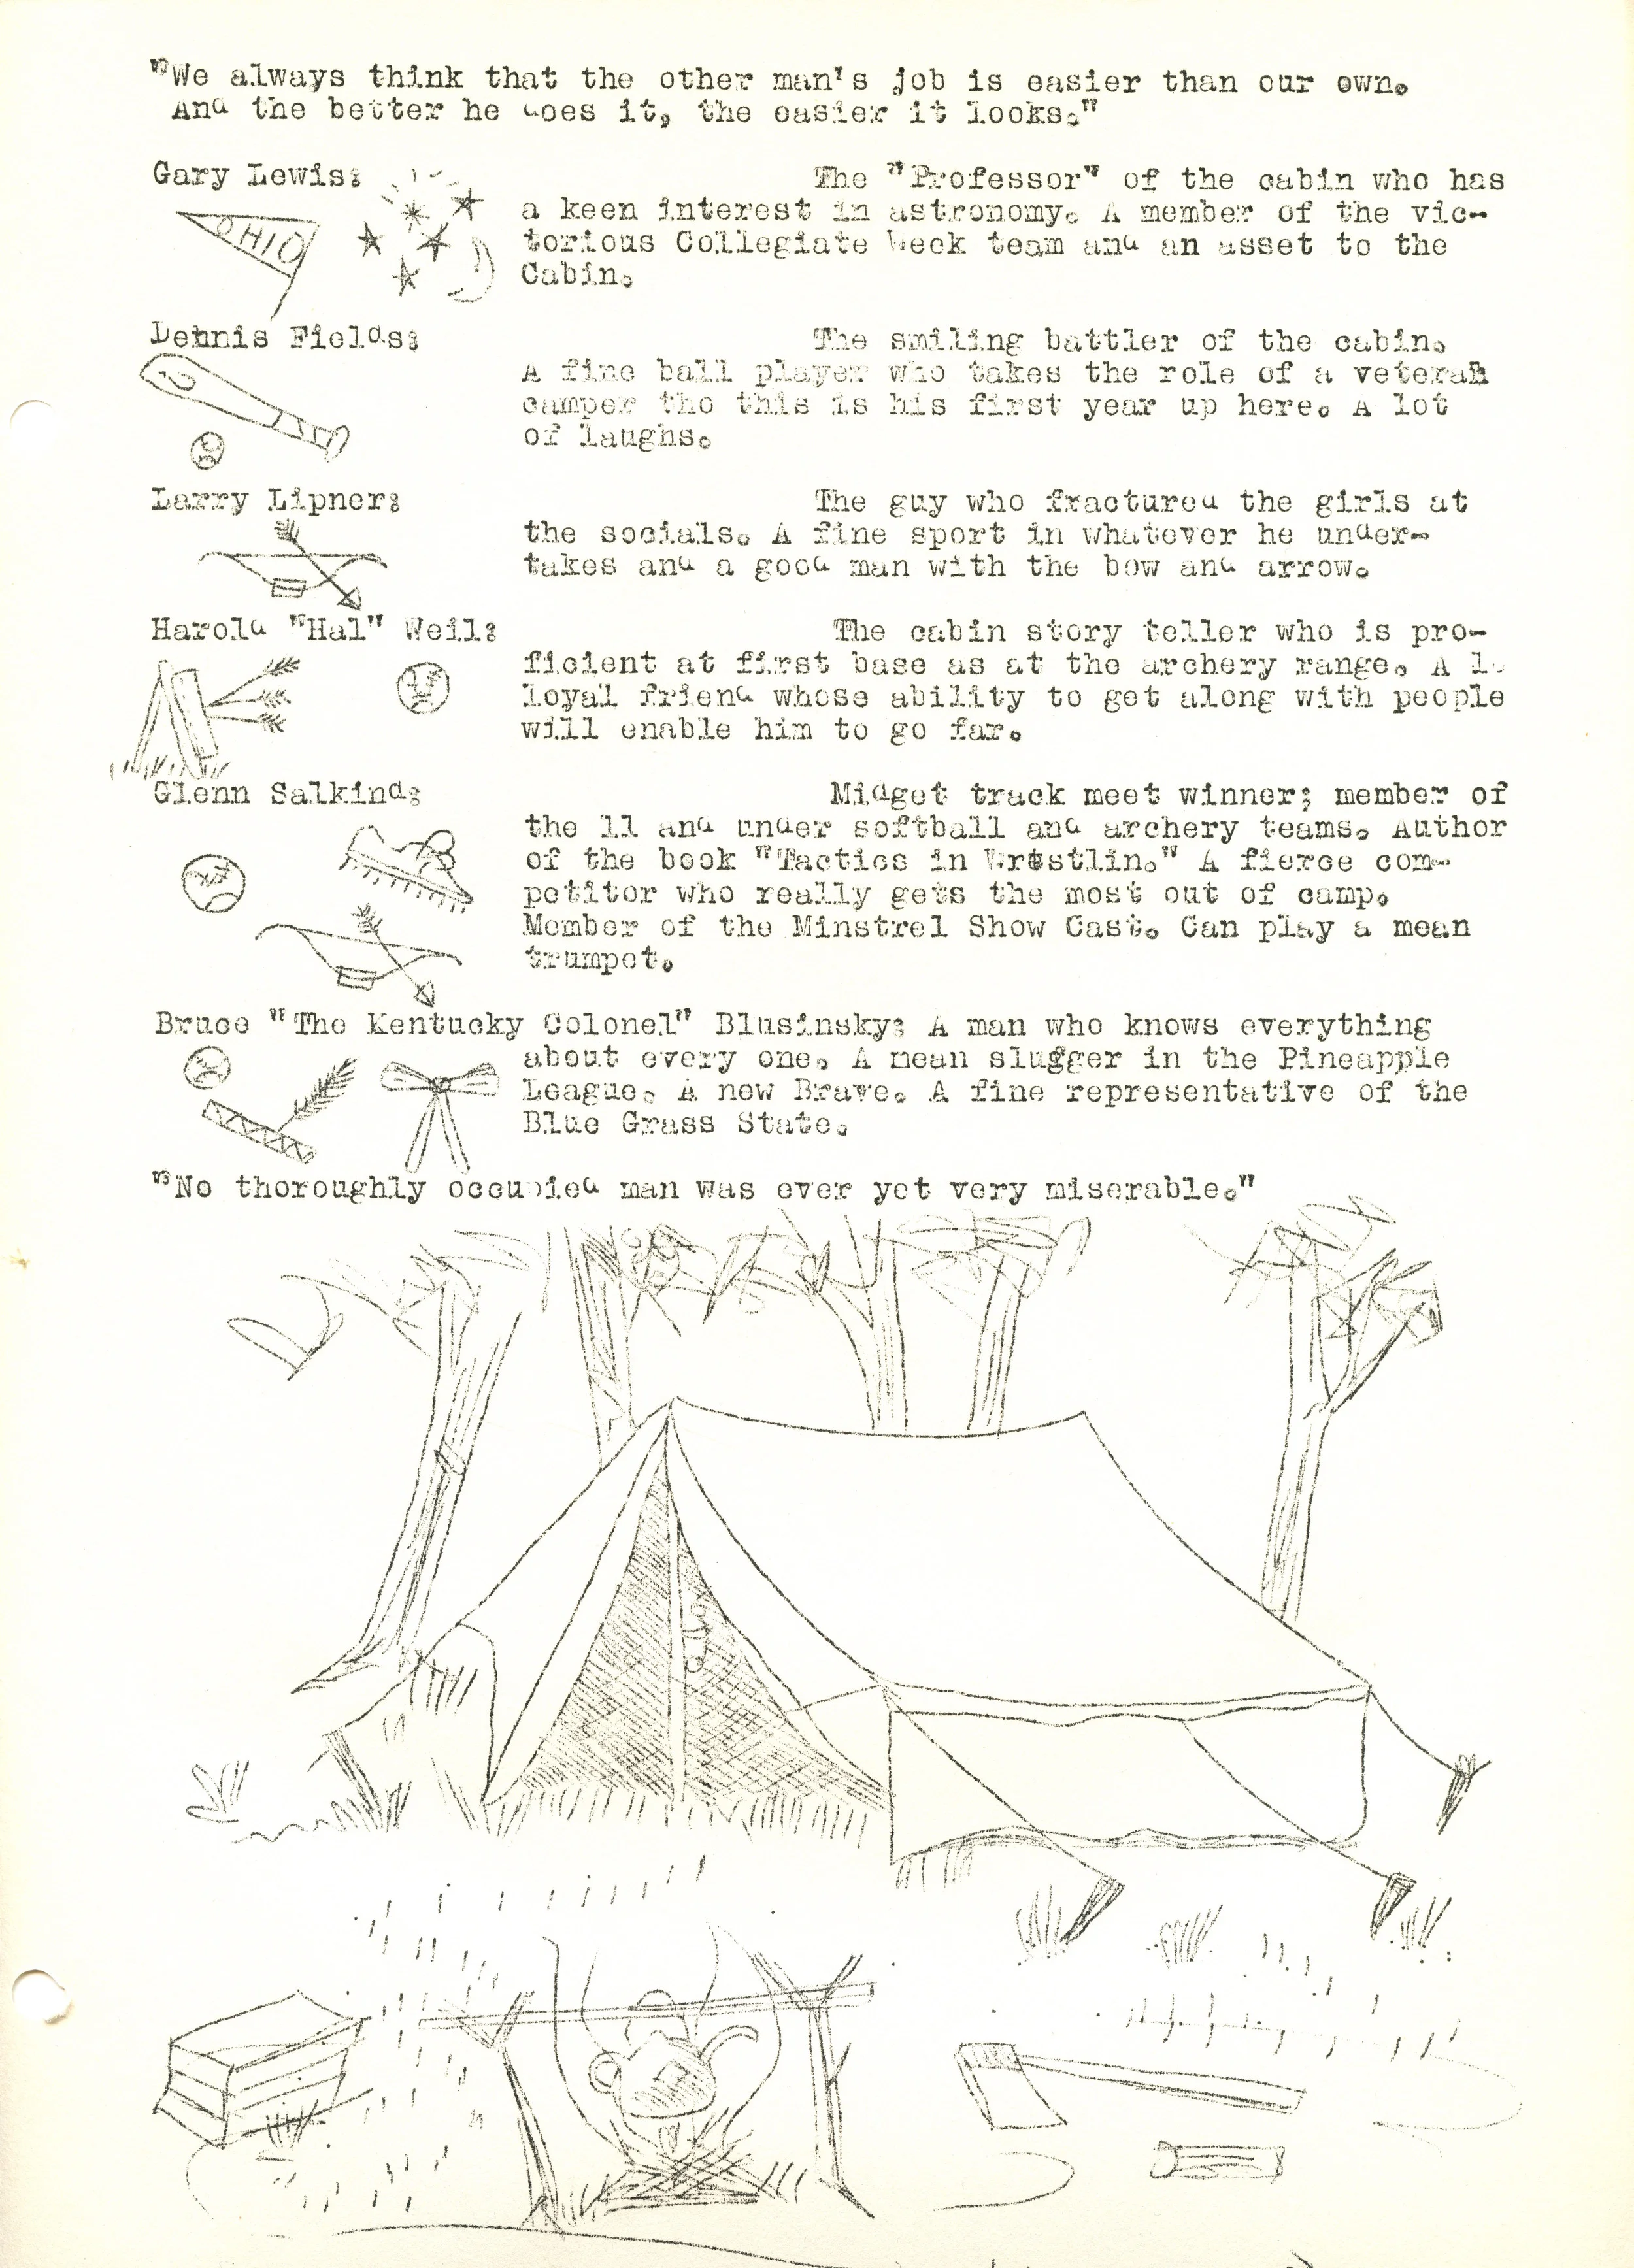 "We always think that the other man's job is easier than our own.
And the better he does it, the easier it looks."
Gary Lewis: The "Professor" of the cabin who has
OHIO
a keen interest in astronomy. A member of the vic-
torious Collegiate Week team and an asset to the
Cabin.
Dennis Fields: The smiling battler of the cabin.
A fine ball player who takes the role of a veteran
camper tho this is his first year up here. A lot
of laughs.
Larry Lipner: The guy who fractured the girls at
the socials. A fine sport in whatever he under-
takes and a good man with the bow and arrow.
Harold "Hal" Weil: The cabin story teller who is pro-
ficient at first base as at the archery range. A lo
loyal friend whose ability to get along with people
will enable him to go far.
Glenn Salkind: Midget track meet winner; member of
the 11 and under softball and archery teams. Author
of the book "Tactics in Wrestlin." A fierce com-
petitor who really gets the most out of camp.
Member of the Minstrel Show Cast. Can play a mean
trumpet.
Bruce "The Kentucky Colonel" Blusinsky: A man who knows everything
about every one. A mean slugger in the Pineapple
League. A new Brave. A fine representative of the
Blue Grass State.
"No thoroughly occupied man was ever yet very miserable."